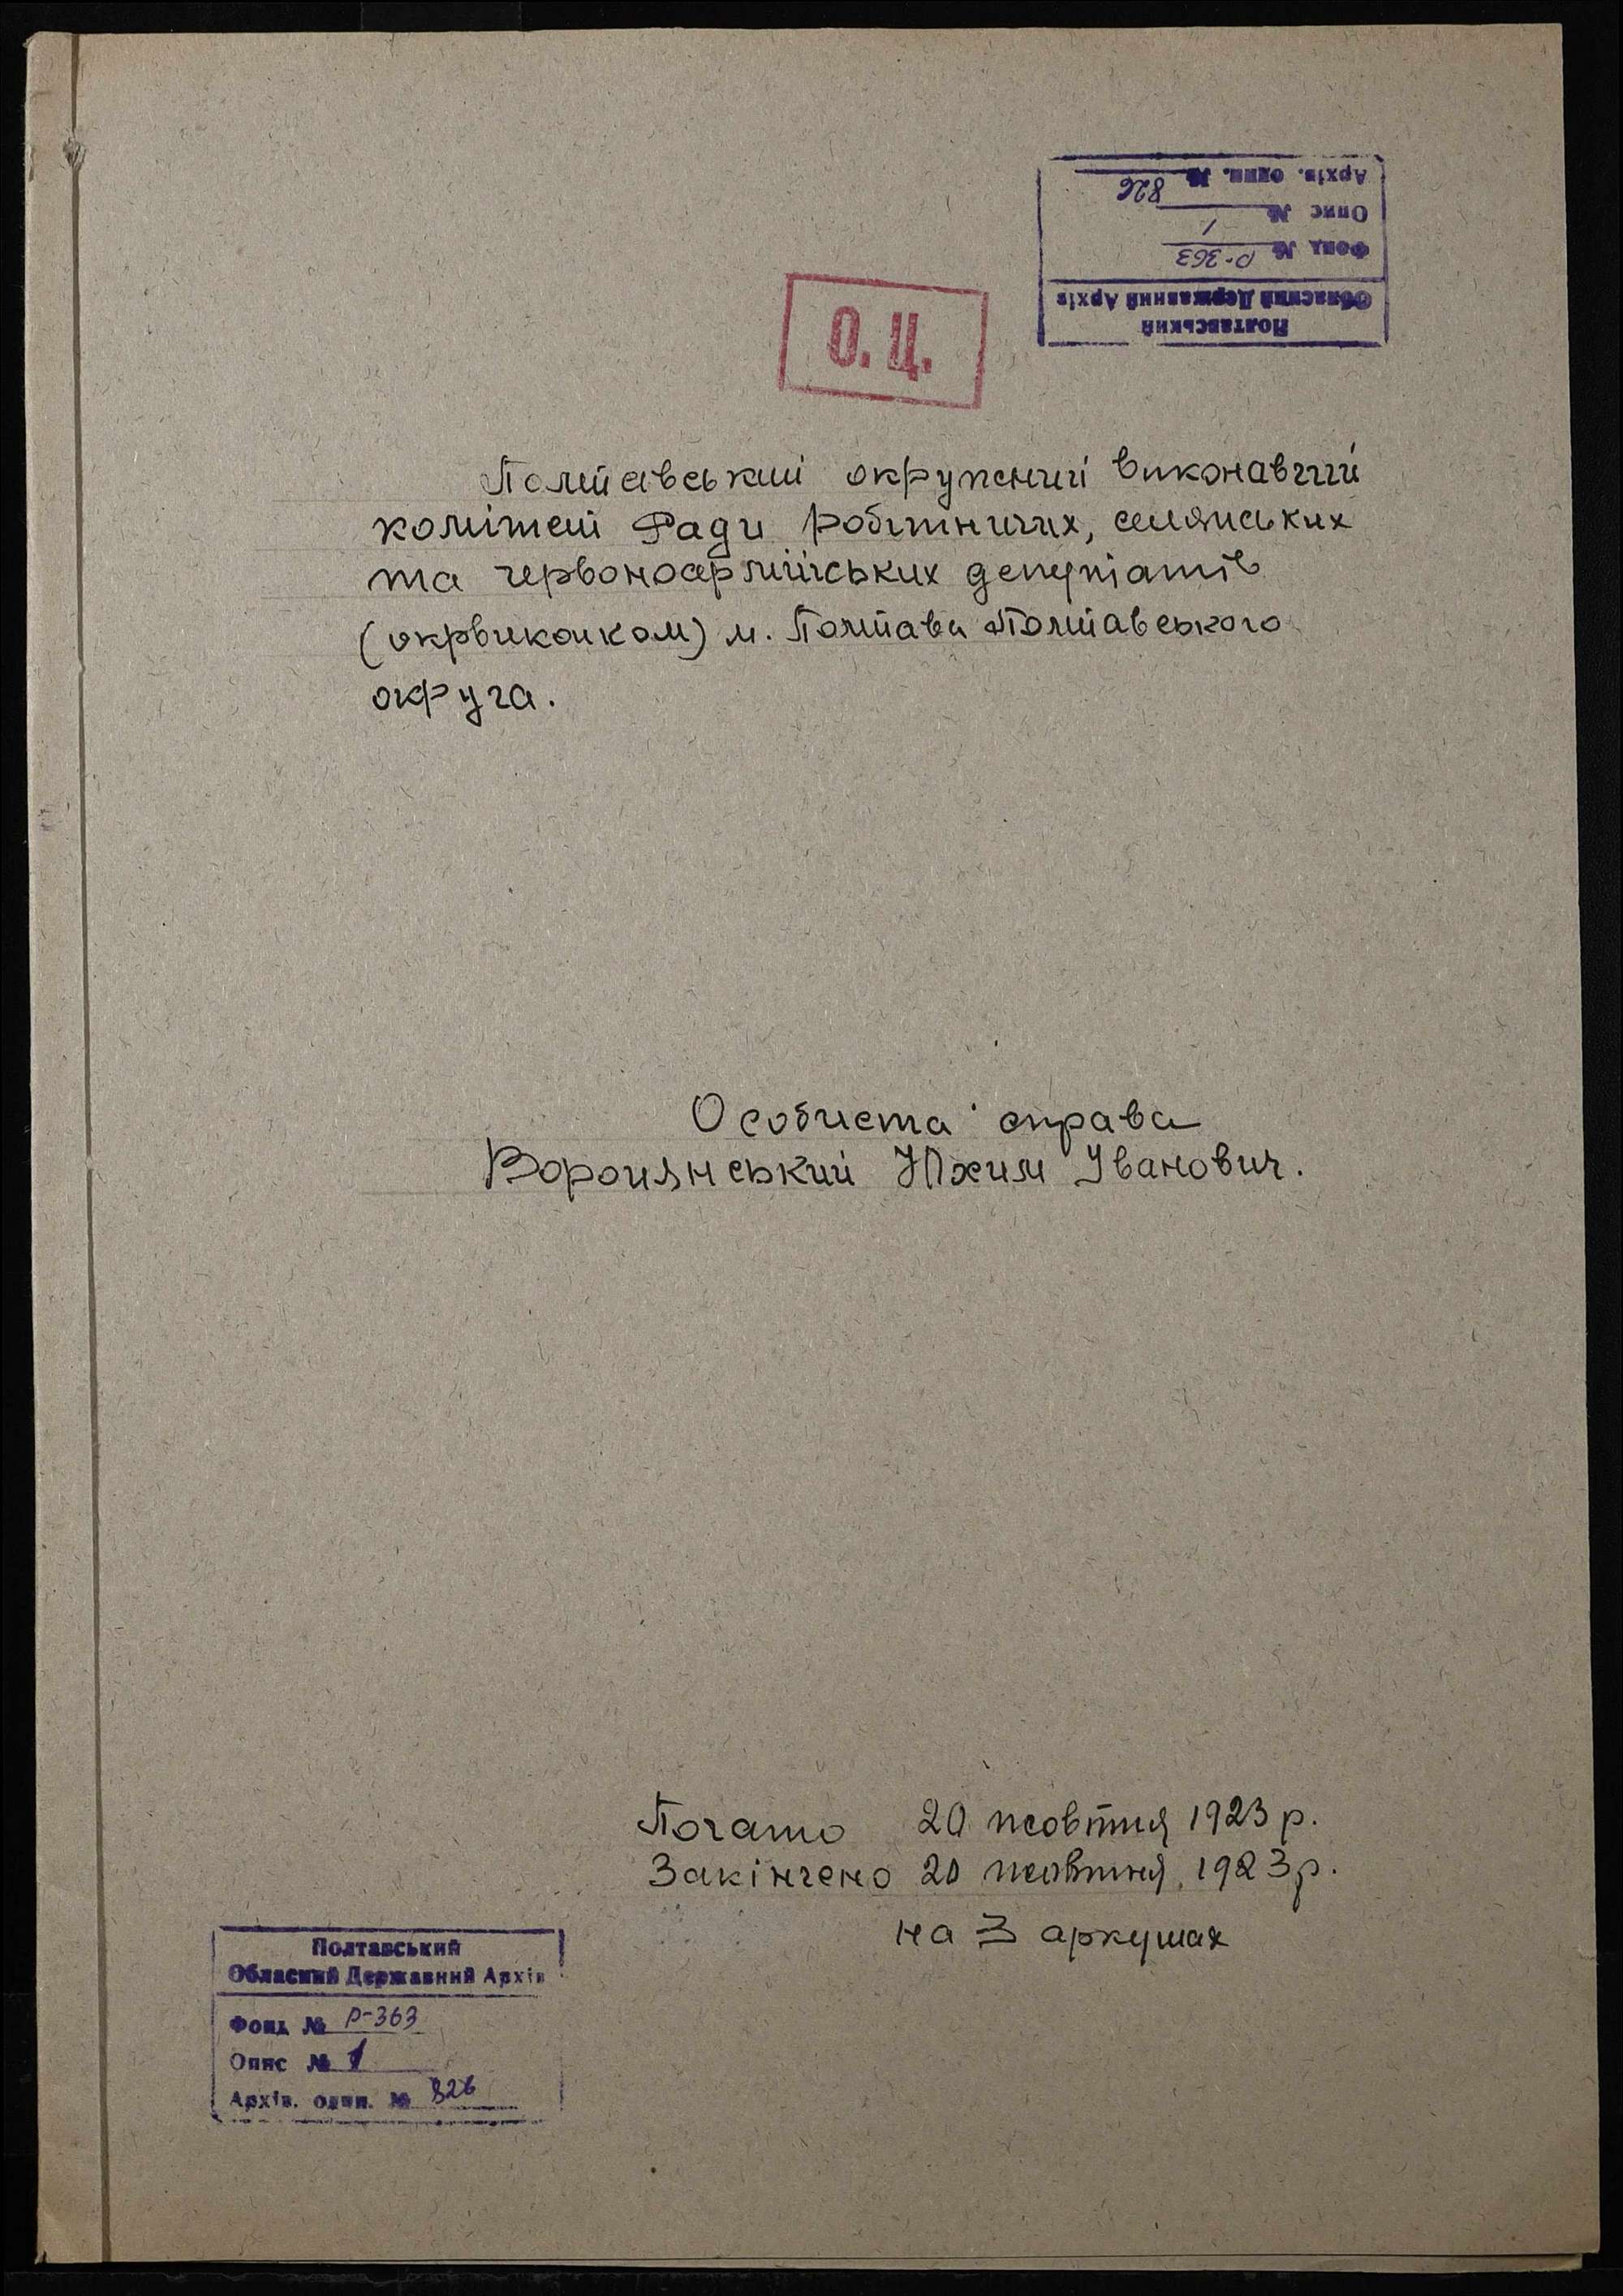 Полтавський
Обласний Державний Архів
Фонд № Р-363
Опис № 1
Архів. один. № 826
О. Ц.
Полтавський окружний виконавчий
комітет Ради робітничих, селянських
та червоноармійських депутатів
(окрвиконком) м. Полтава Полтавського
округа.
Особиста справа
Воронянський Юхим Іванович.
Почато 20 жовтня 1923 р.
Закінчено 20 жовтня 1923 р.
на 3 аркушах
Полтавський
Обласний Державний Архів
Фонд № Р-363
Опис № 1
Архів. один. № 826